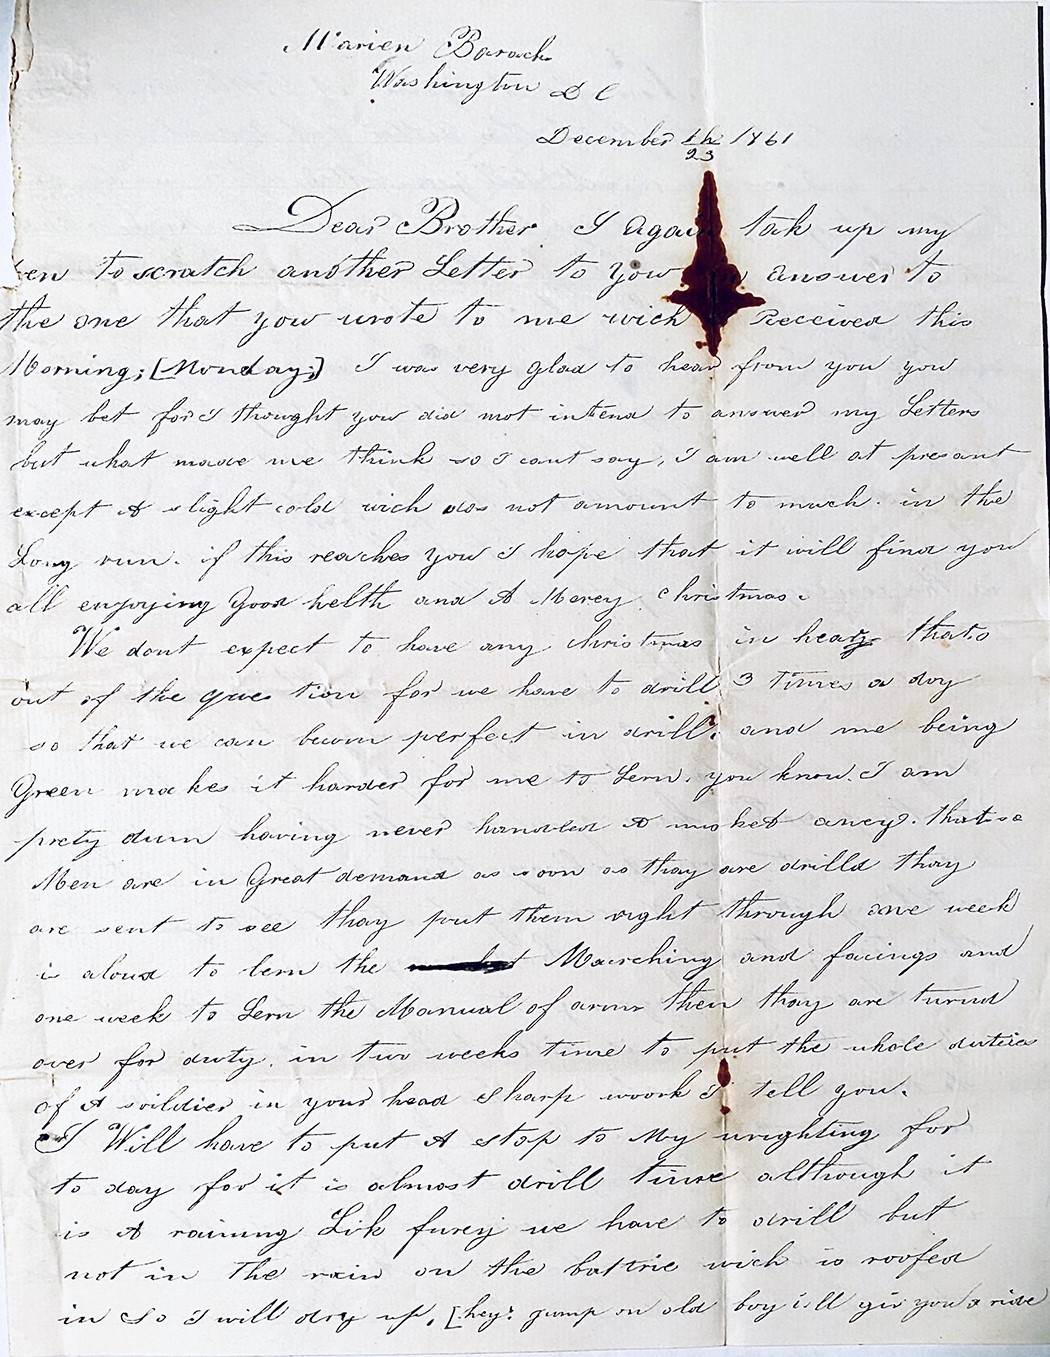 Marien Barack
Washington D C
December 23th 1861
Dear Brother I Again tak up my
en to scratch another Letter to yow in answer to
the one that yow wrote to me wich Received this
Morning; [Monday;] I was very glad to hear from you you
may bet for I thought you did not intend to answer my Letters
but what made me think so I cant say, I am well at presant
except A slight cold wich dos not amount to much. in the
Long run. if this reaches you I hope that it will find you
all enjoying Good helth and A Merey Christmas.
We dont expect to have any christmas in hear thats
out of the question for we have to drill 3 times a day
so that we can becom perfect in drill. and me being
Green makes it harder for me to Lern. you know. I am
prety dum having never handled A musket aney. thats
Men are in Great demand as soon as thay are drilld thay
are sent to see thay put them right through one week
is aloud to lern the Marching and facings and
one week to Lern the Manual of arms then thay are turnd
over for duty. in two weeks time to put the whole duties
of A soildier in your head sharp woork I tell you.
I Will have to put A stop to My wrighting for
to day for it is almost drill time although it
is A raining Lik furey we have to drill but
not in the rain on the battrie wich is roofed
in so I will dry up, [hey! jump on old boy ill giv you a ride